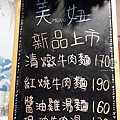 美妞
MENU
新品上市
清燉牛肉麵170
紅燒牛肉麵190
醬油雞湯麵160